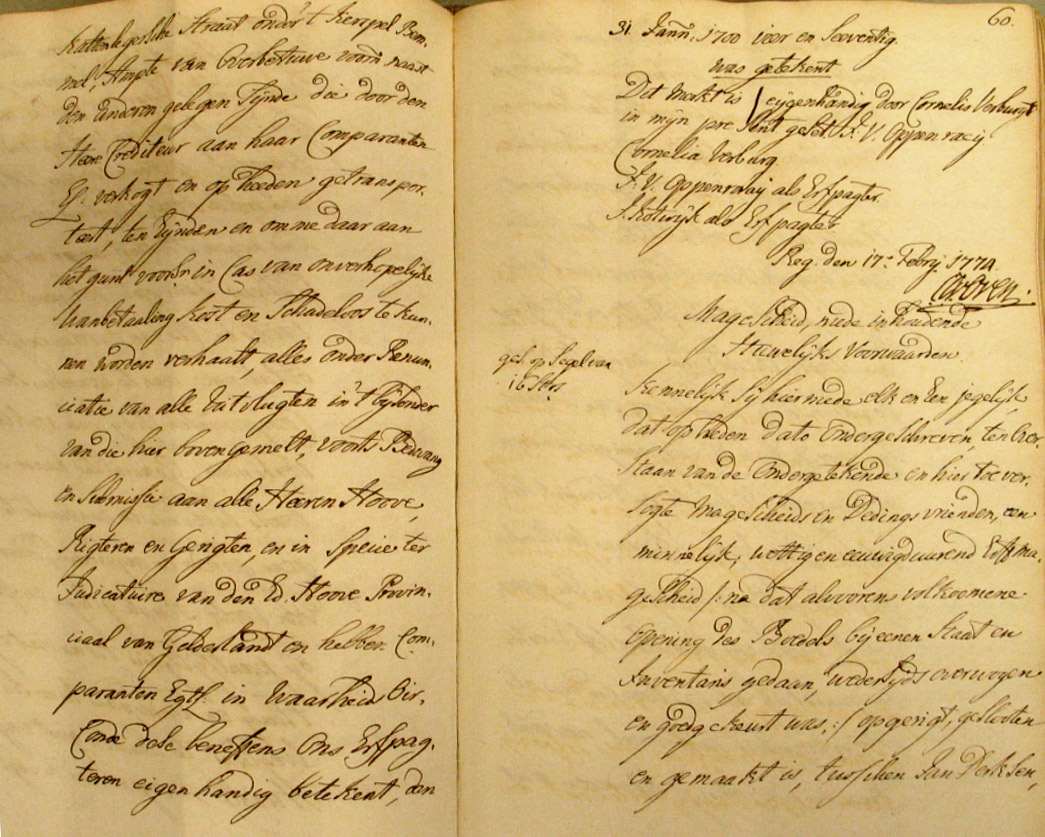 Kattenlegerse Straat onder 't Kerspel Bem-
mel, Ampte van Overbetuwe voorn. naast
den anderen gelegen Zijnde die door den
Heere Crediteur aan haar Comparanten
El. verkogt en op heeden getranspor-
teert, ten Eijnden en omme daar aan
het gunt voorsr. in Cas van onverhopelijke
Wanbetaaling kost en Schadeloos te kun-
nen worden verhaalt, alles onder Renun-
ciatie van alle Uitvlugten in 't bijsonder
van die hier boven gemelt, voorts Bedwang
en Submissie aan alle Heeren Hoove,
Rigteren en Gerigten, en in Specie ter
Judicatuire van den Ed. Hoove Provin-
ciaal van Gelderlandt en hebben Com-
paranten Egtl. in Waarheids Oir-
Conde dese beneffens Ons Erfpag-
teren eigenhandig betekent, den
60.
31. Jann. 1700 vier en Seeventig.
was getekent
Dit merkt is / eijgenhandig door Cornelis Verburgt
in mijn pre Sent geset J. V. Oppenraeij
Cornelia Verburg.
J. V. Oppenraaij als Erfpagter.
S. Kolwijk als Erfpagter
Reg. den 17e Febrij. 1774.
Magescheid, mede inhoudende
Houwelijks Voorwaarden.
get. op Segel van
16 Strs
Kennelijk Sij hiermede elk en een jegelijk,
dat op heden dato Ondergeschreven, ten Over-
staan van de Ondergetekende en hier toe ver-
sogte Magescheids en Dedings vrienden, een
minnelijk, wettig en eeuwigduurend Erfma-
gescheid /: na dat alvorens volkoomene
Opening des Boedels bij eenen Staat en
Inventaris gedaan, wedersijds overwogen
en goedgekeurt was, :/ opgerigt, geslooten
en gemaakt is, tusschen Jan Derksen,